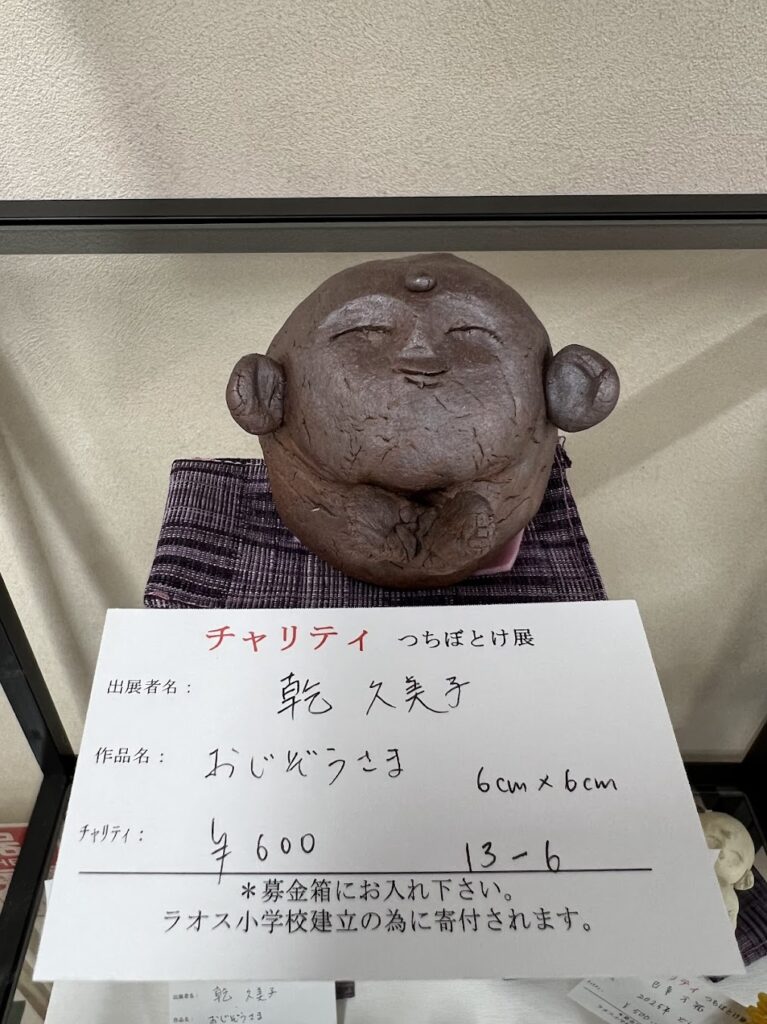 チャリティ つちぼとけ展
出展者名： 乾 久美子
作品名： おじぞうさま 6cm×6cm
チャリティ： ¥600 13-6
＊募金箱にお入れ下さい。
ラオス小学校建立の為に寄付されます。
出展者名： 乾 久美子
作品名： おじぞうさま
チャリティ つちぼとけ展